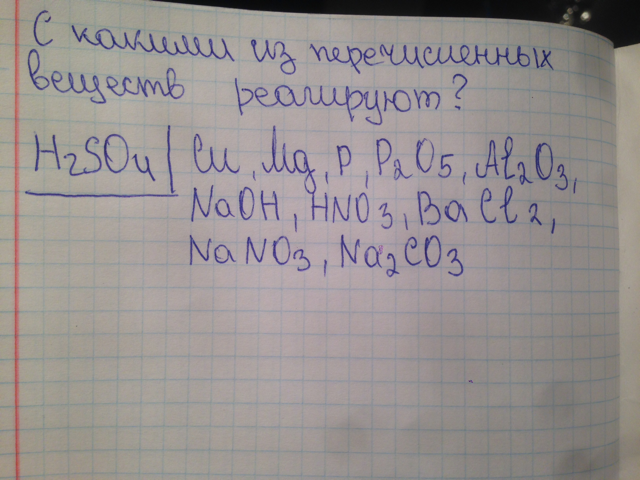 С какими из перечисленных
веществ реагируют?
H₂SO₄ | Cu, Mg, P, P₂O₅, Al₂O₃,
NaOH, HNO₃, BaCl₂,
NaNO₃, Na₂CO₃